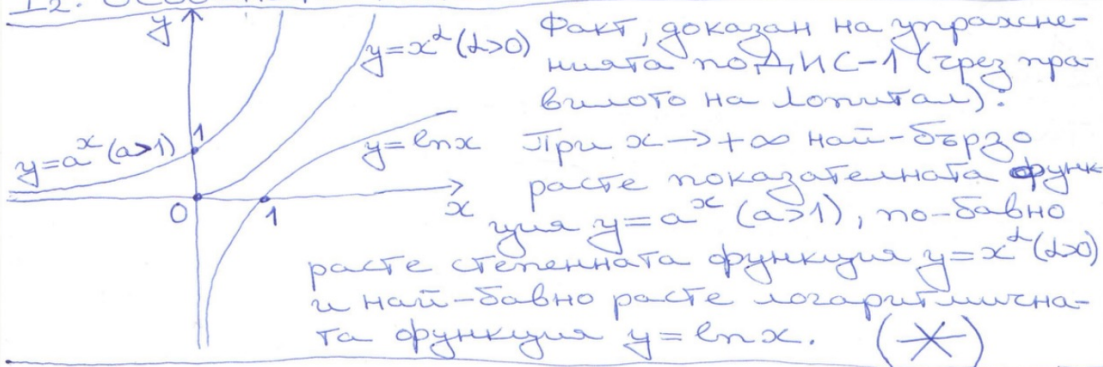 y
y=x^α (α>0)
y=a^x (a>1)
1
y=lnx
0
1
x
Факт, доказан на упражне-
нията по ДИС-1 (чрез пра-
вилото на Лопитал):
При x→+∞ най-бързо
расте показателната функ-
ция y=a^x (a>1), по-бавно
расте степенната функция y=x^α (α>0)
и най-бавно расте логаритмична-
та функция y=lnx. (*)